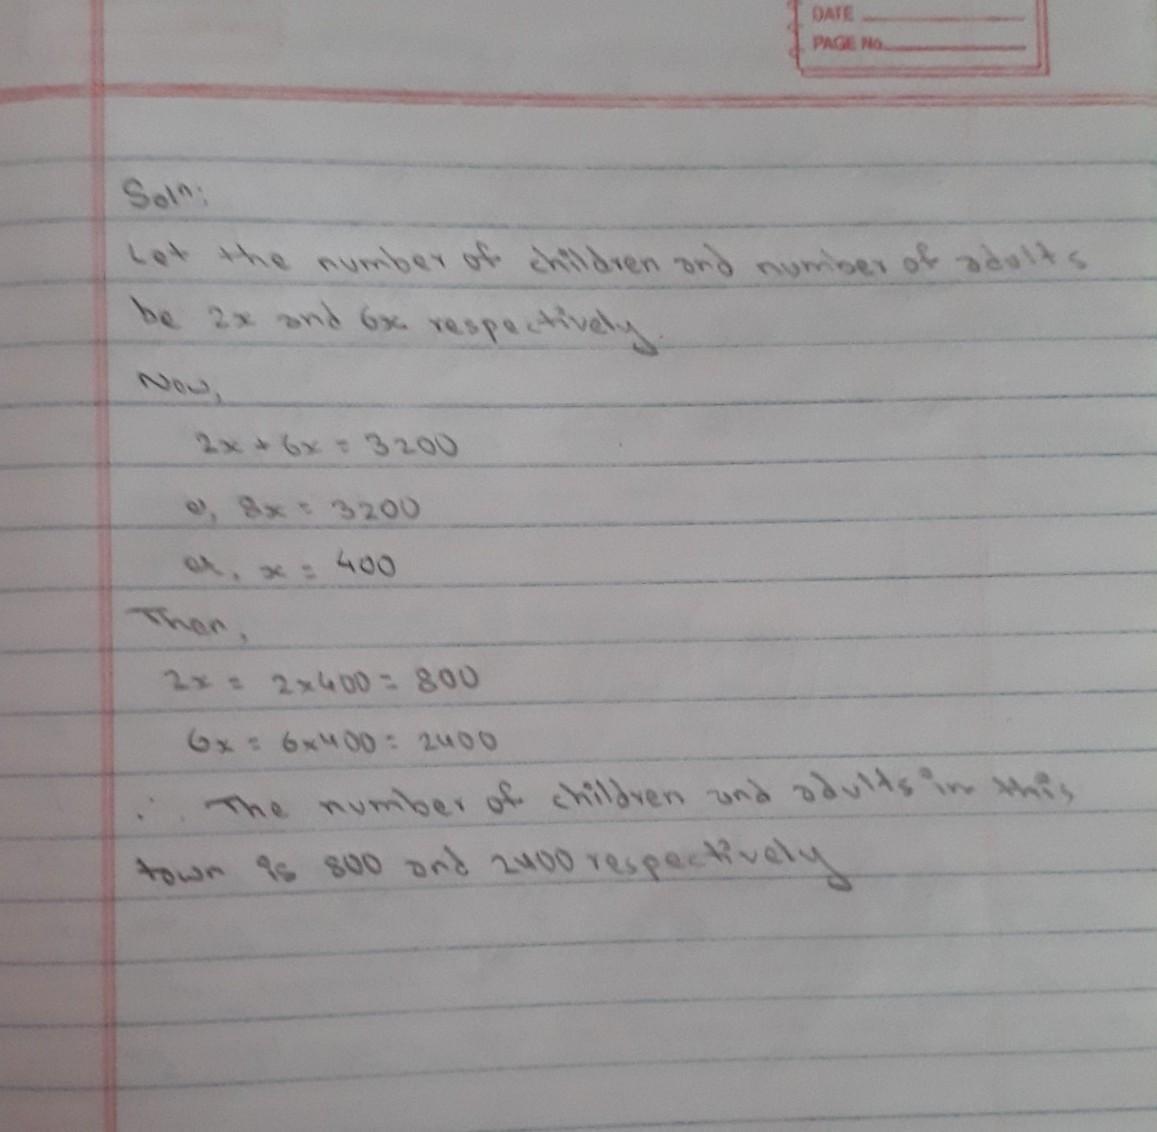 DATE
PAGE No.
Soln:
Let the number of children and number of adults
be 2x and 6x respectively.
Now,
2x + 6x = 3200
or, 8x = 3200
or, x = 400
Then,
2x = 2x400 = 800
6x = 6x400 = 2400
∴ The number of children and adults in this
town is 800 and 2400 respectively